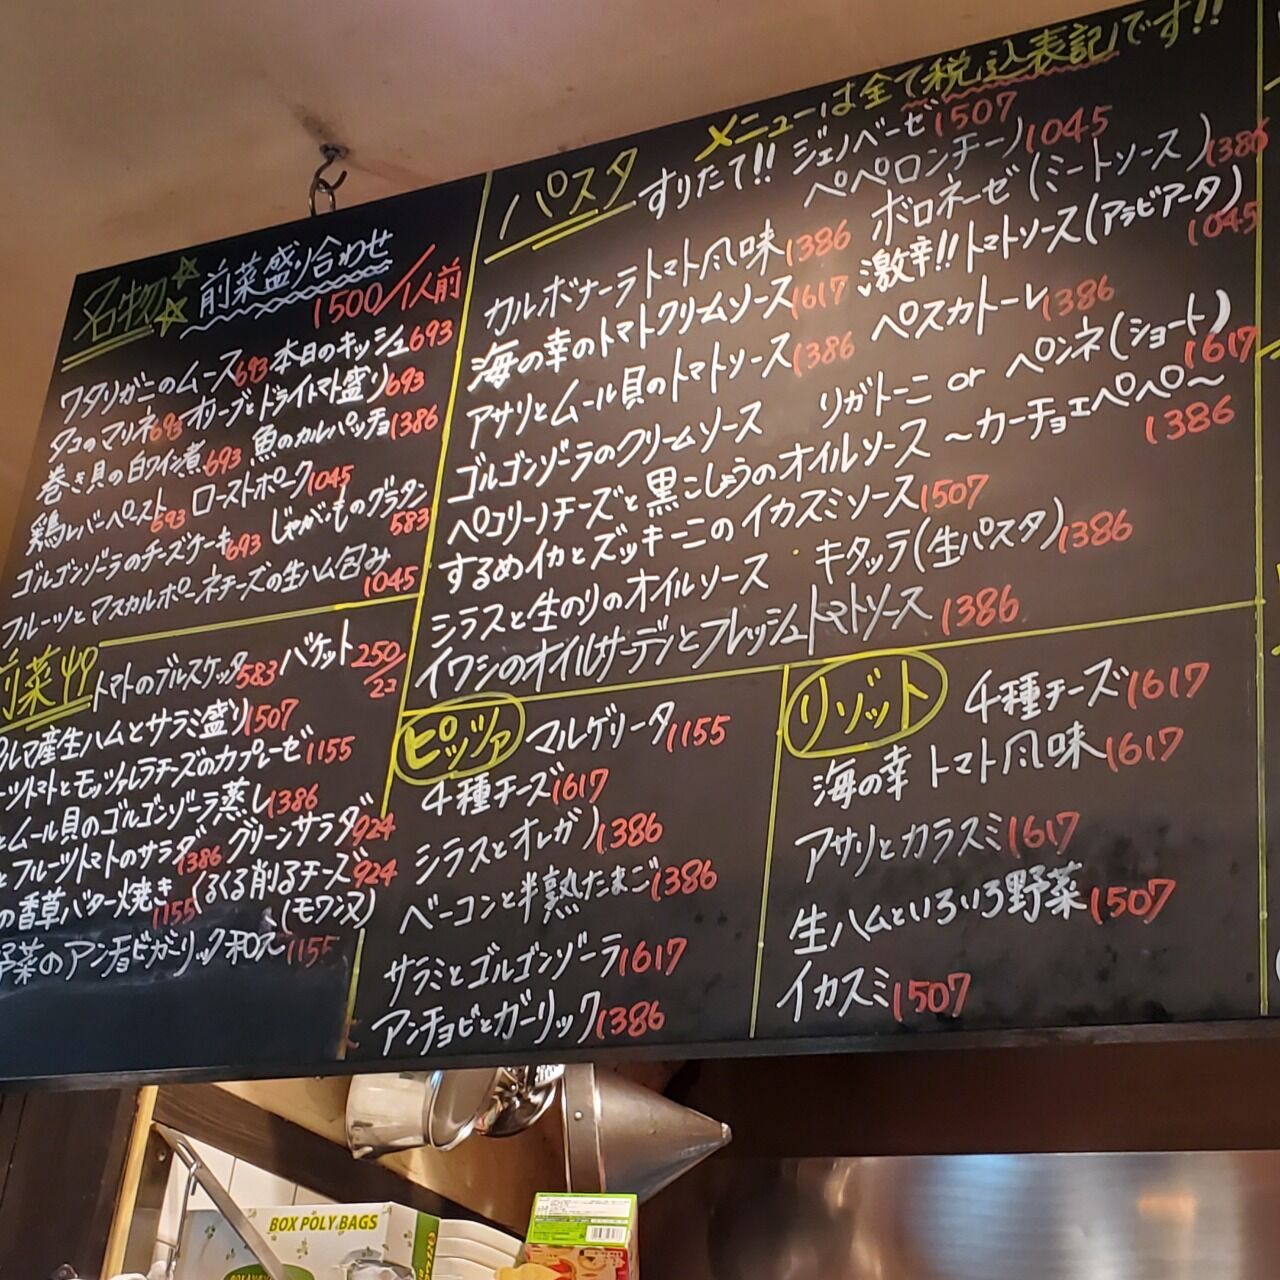 メニューは全て税込表記です!!
名物☆☆ 前菜盛り合わせ
1500/1人前
ワタリガニのムース693 本日のキッシュ693
タコのマリネ693 オリーブとドライトマト盛り693
巻き貝の白ワイン煮693 魚のカルパッチョ1386
鶏レバーペースト693 ローストポーク1045
ゴルゴンゾーラのチーズケーキ693 じゃがいものグラタン583
フルーツとマスカルポーネチーズの生ハム包み1045
前菜
トマトのブルスケッタ583 バゲット250/2コ
パルマ産生ハムとサラミ盛り1507
ーツトマトとモッツァレラチーズのカプレーゼ1155
とムール貝のゴルゴンゾーラ蒸し1386
とフルーツトマトのサラダ1386 グリーンサラダ924
の香草バター焼き1155 くるくる削るチーズ924
(モワンヌ)
野菜のアンチョビガーリック和え1155
パスタ
すりたて!! ジェノベーゼ1507
ペペロンチーノ1045
カルボナーラトマト風味1386 ボロネーゼ(ミートソース)1386
海の幸のトマトクリームソース1617 激辛!!トマトソース(アラビアータ)1045
アサリとムール貝のトマトソース1386 ペスカトーレ1386
ゴルゴンゾーラのクリームソース リガトーニ or ペンネ(ショート)1617
ペコリーノチーズと黒こしょうのオイルソース ～カーチョエペペ～1386
するめイカとズッキーニのイカスミソース1507
シラスと生のりのオイルソース キタッラ(生パスタ)1386
イワシのオイルサーデンとフレッシュトマトソース1386
ピッツァ
マルゲリータ1155
4種チーズ1617
シラスとオレガノ1386
ベーコンと半熟たまご1386
サラミとゴルゴンゾーラ1617
アンチョビとガーリック1386
リゾット
4種チーズ1617
海の幸 トマト風味1617
アサリとカラスミ1617
生ハムといろいろ野菜1507
イカスミ1507
BOX POLY BAGS